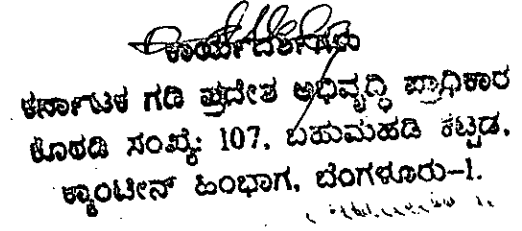 ಕಾರ್ಯದರ್ಶಿಗಳು
ಕರ್ನಾಟಕ ಗಡಿ ಪ್ರದೇಶ ಅಭಿವೃದ್ಧಿ ಪ್ರಾಧಿಕಾರ
ಕೊಠಡಿ ಸಂಖ್ಯೆ: 107, ಬಹುಮಹಡಿ ಕಟ್ಟಡ,
ಕ್ಯಾಂಟೀನ್ ಹಿಂಭಾಗ, ಬೆಂಗಳೂರು-1.